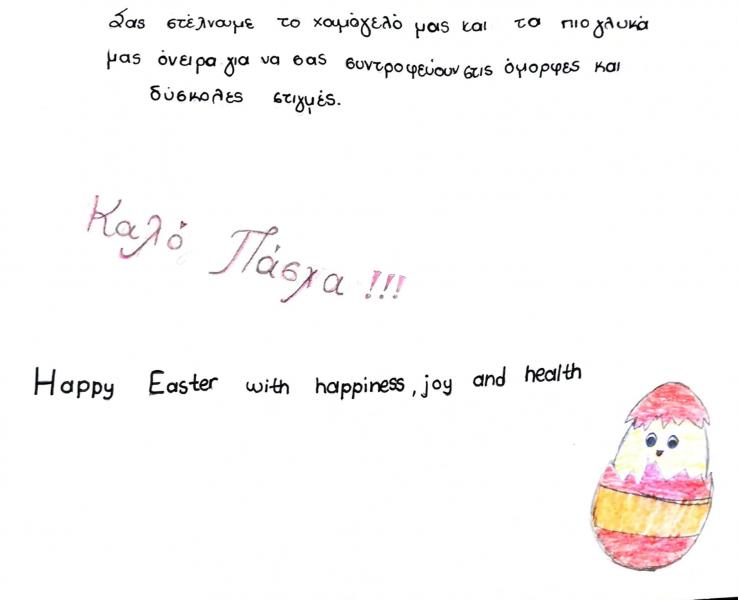 Σας στέλνουμε το χαμόγελό μας και τα πιο γλυκά
μας όνειρα για να σας συντροφεύουν στις όμορφες και
δύσκολες στιγμές.
Καλό Πάσχα !!!
Happy Easter with happiness, joy and health